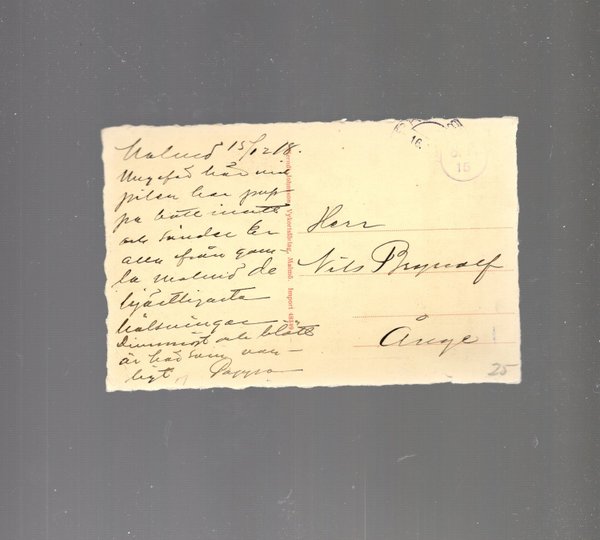 Malmö 15/12 18.
Ungefär här vid
pilen har pap-
pa bott inatt
och sänder Er
alla från gam-
la Malmö de
hjärtligaste
hälsningar
Dimmigt och blött
är här som van-
ligt Pappa
Vykortsförlag, Malmö. Import
Herr
Nils Brynolf
Ånge
16.
15
25